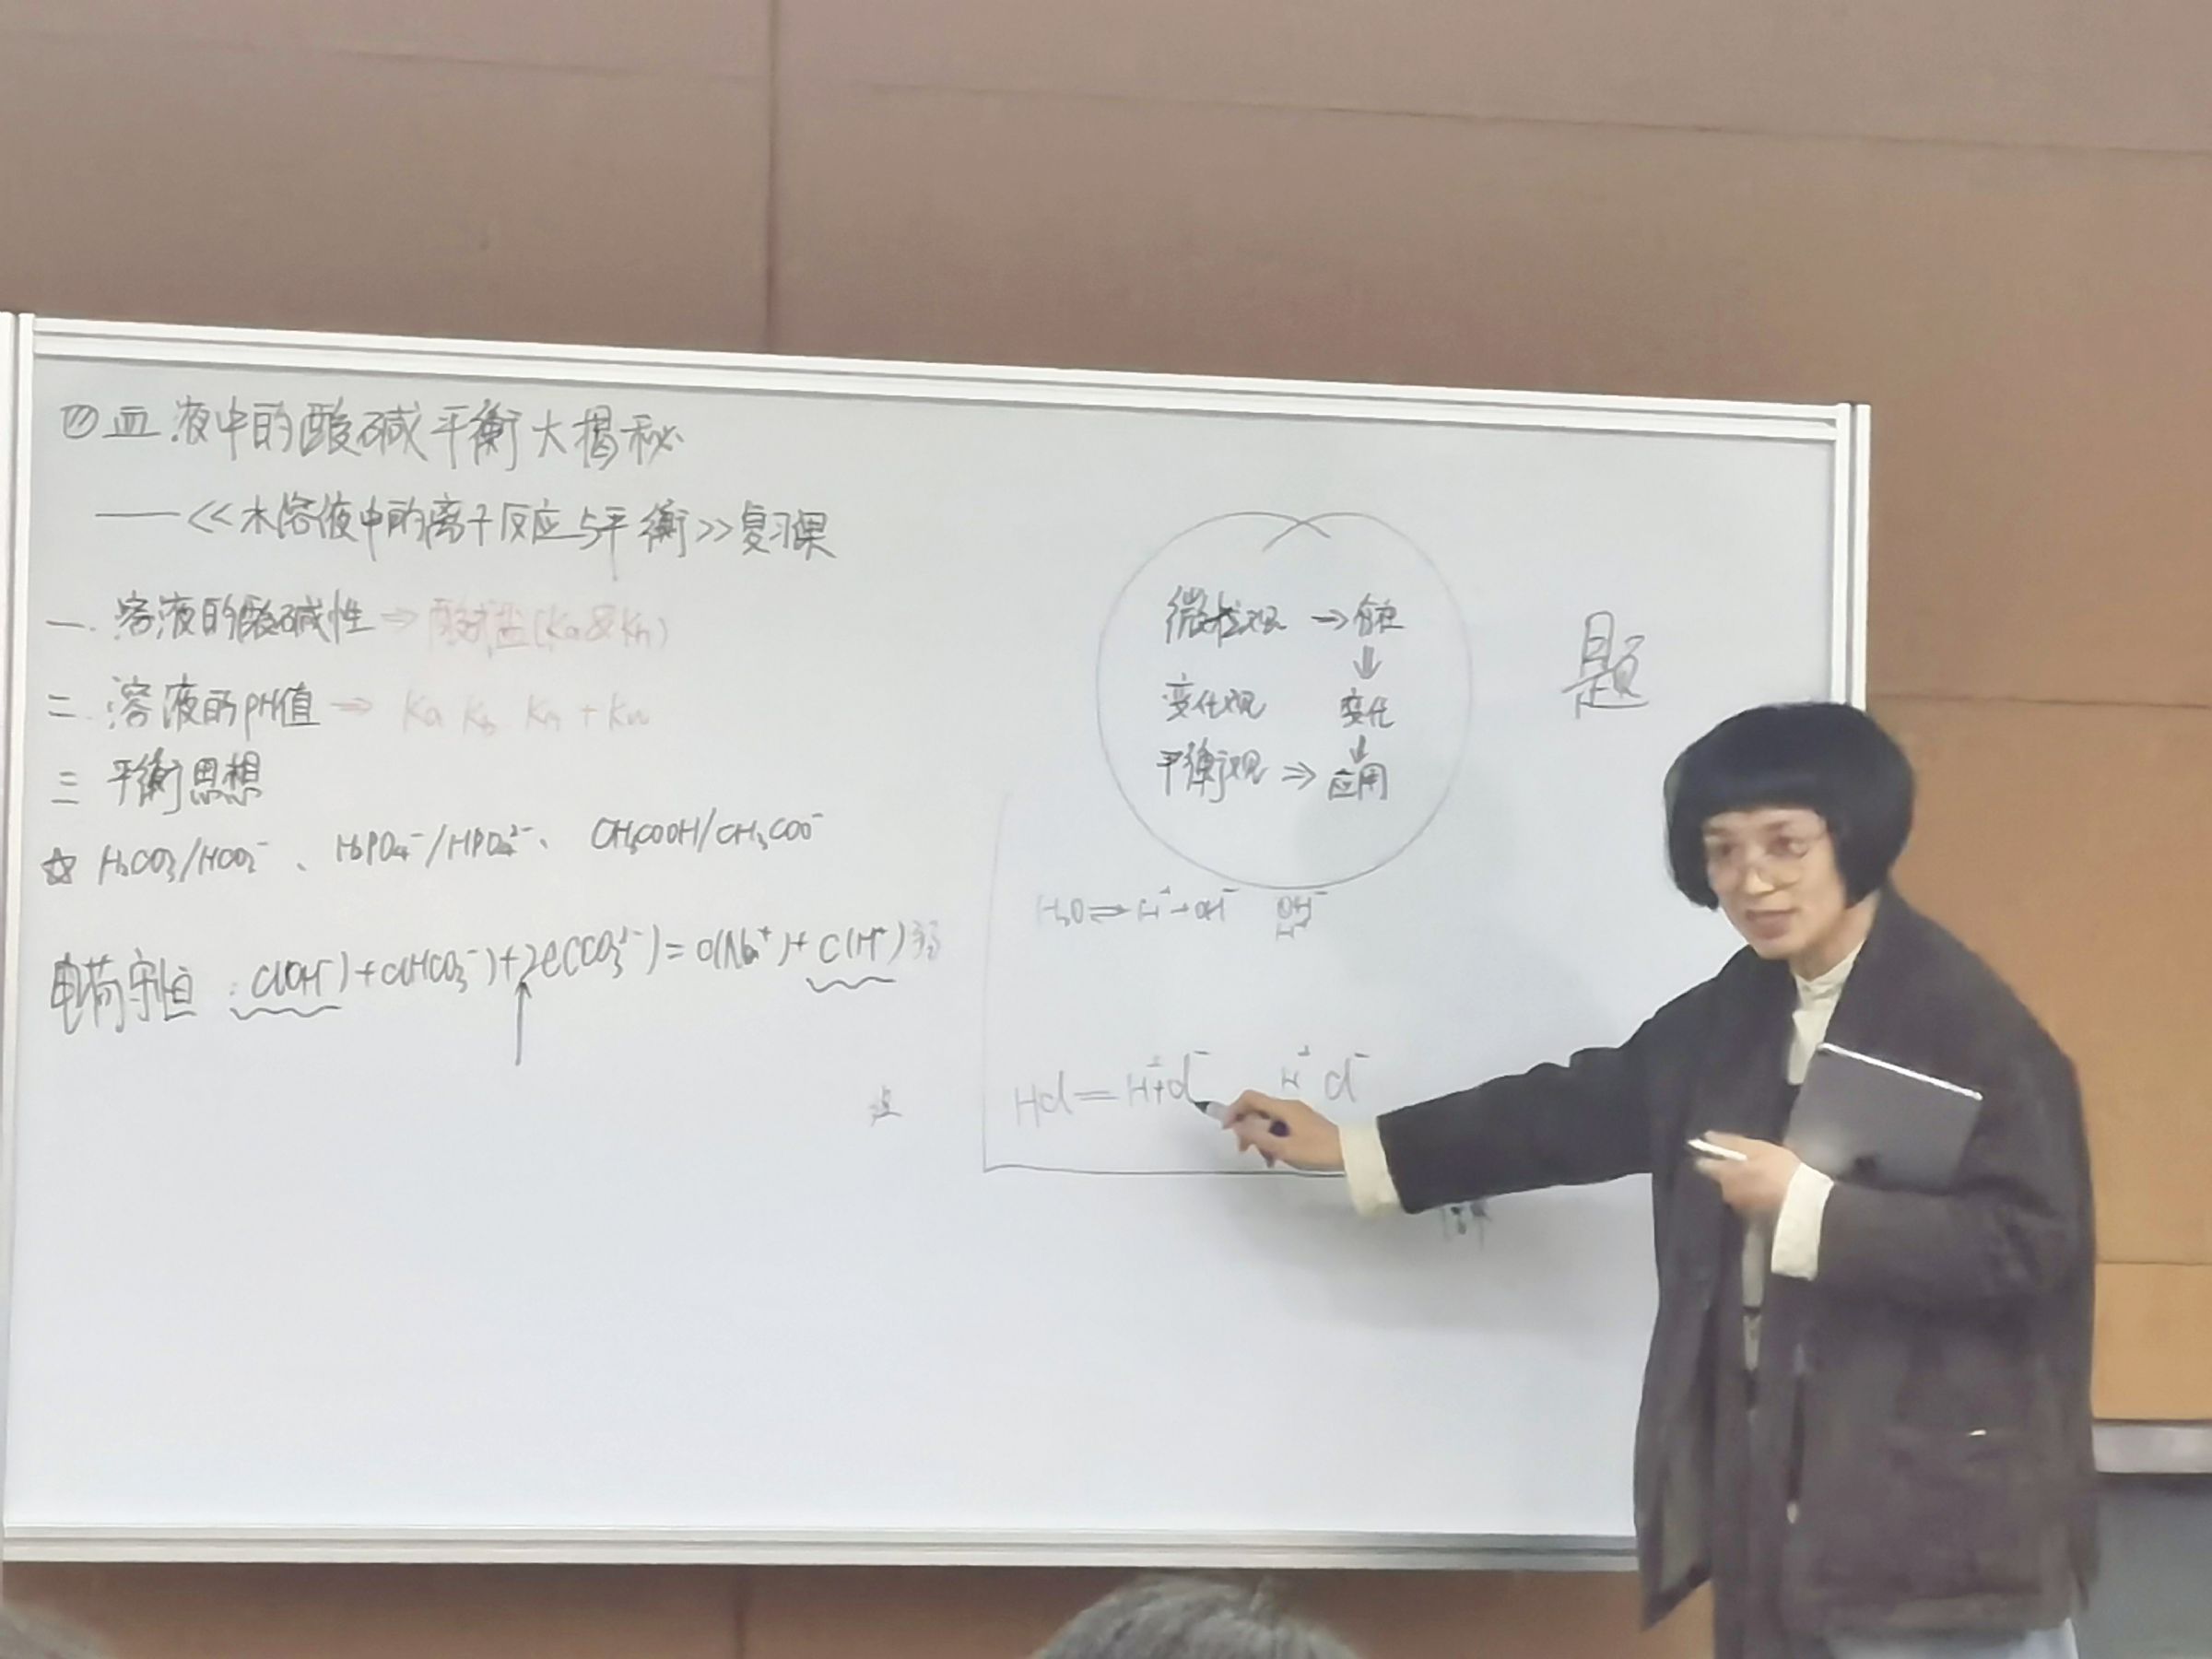 血液中的酸碱平衡大揭秘
——《水溶液中的离子反应与平衡》复习课
一. 溶液的酸碱性 ⇒ 酸碱盐(Ka&Kh)
二. 溶液的pH值 ⇒ Ka Kb Kh + Kw
三 平衡思想
☆ H₂CO₃/HCO₃⁻、H₂PO₄⁻/HPO₄²⁻、CH₃COOH/CH₃COO⁻
电荷守恒:c(OH⁻)+c(HCO₃⁻)+2c(CO₃²⁻)=c(Na⁺)+c(H⁺)
微粒观 ⇒
⇓
变化观 变化
↓
平衡观 ⇒ 应用
题
H₂O⇌H⁺+OH⁻ OH⁻
H⁺
HCl=H⁺+Cl⁻ H⁺ Cl⁻